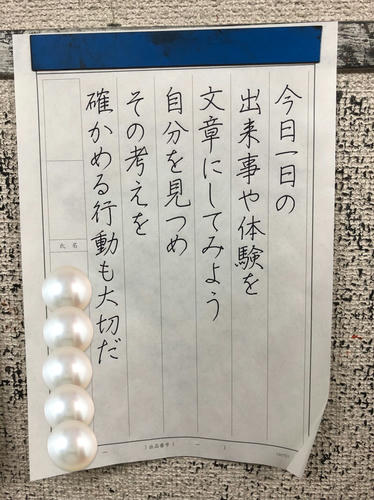 今日一日の
出来事や体験を
文章にしてみよう
自分を見つめ
その考えを
確かめる行動も大切だ
氏名
出品番号